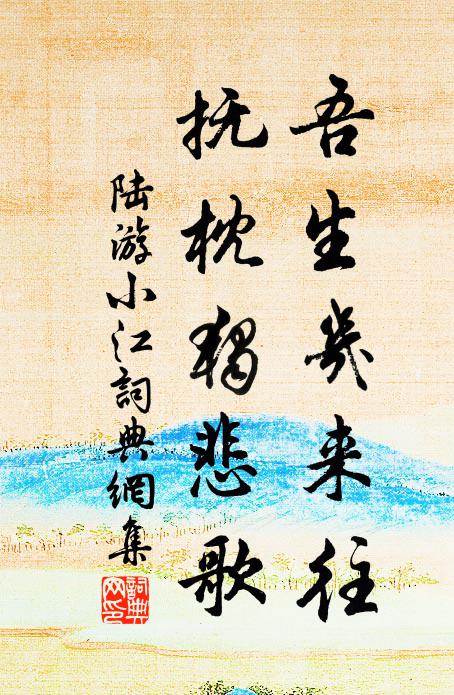 吾生幾来往
抚枕獨悲歌
陆游小江詞典網集
詞典网印